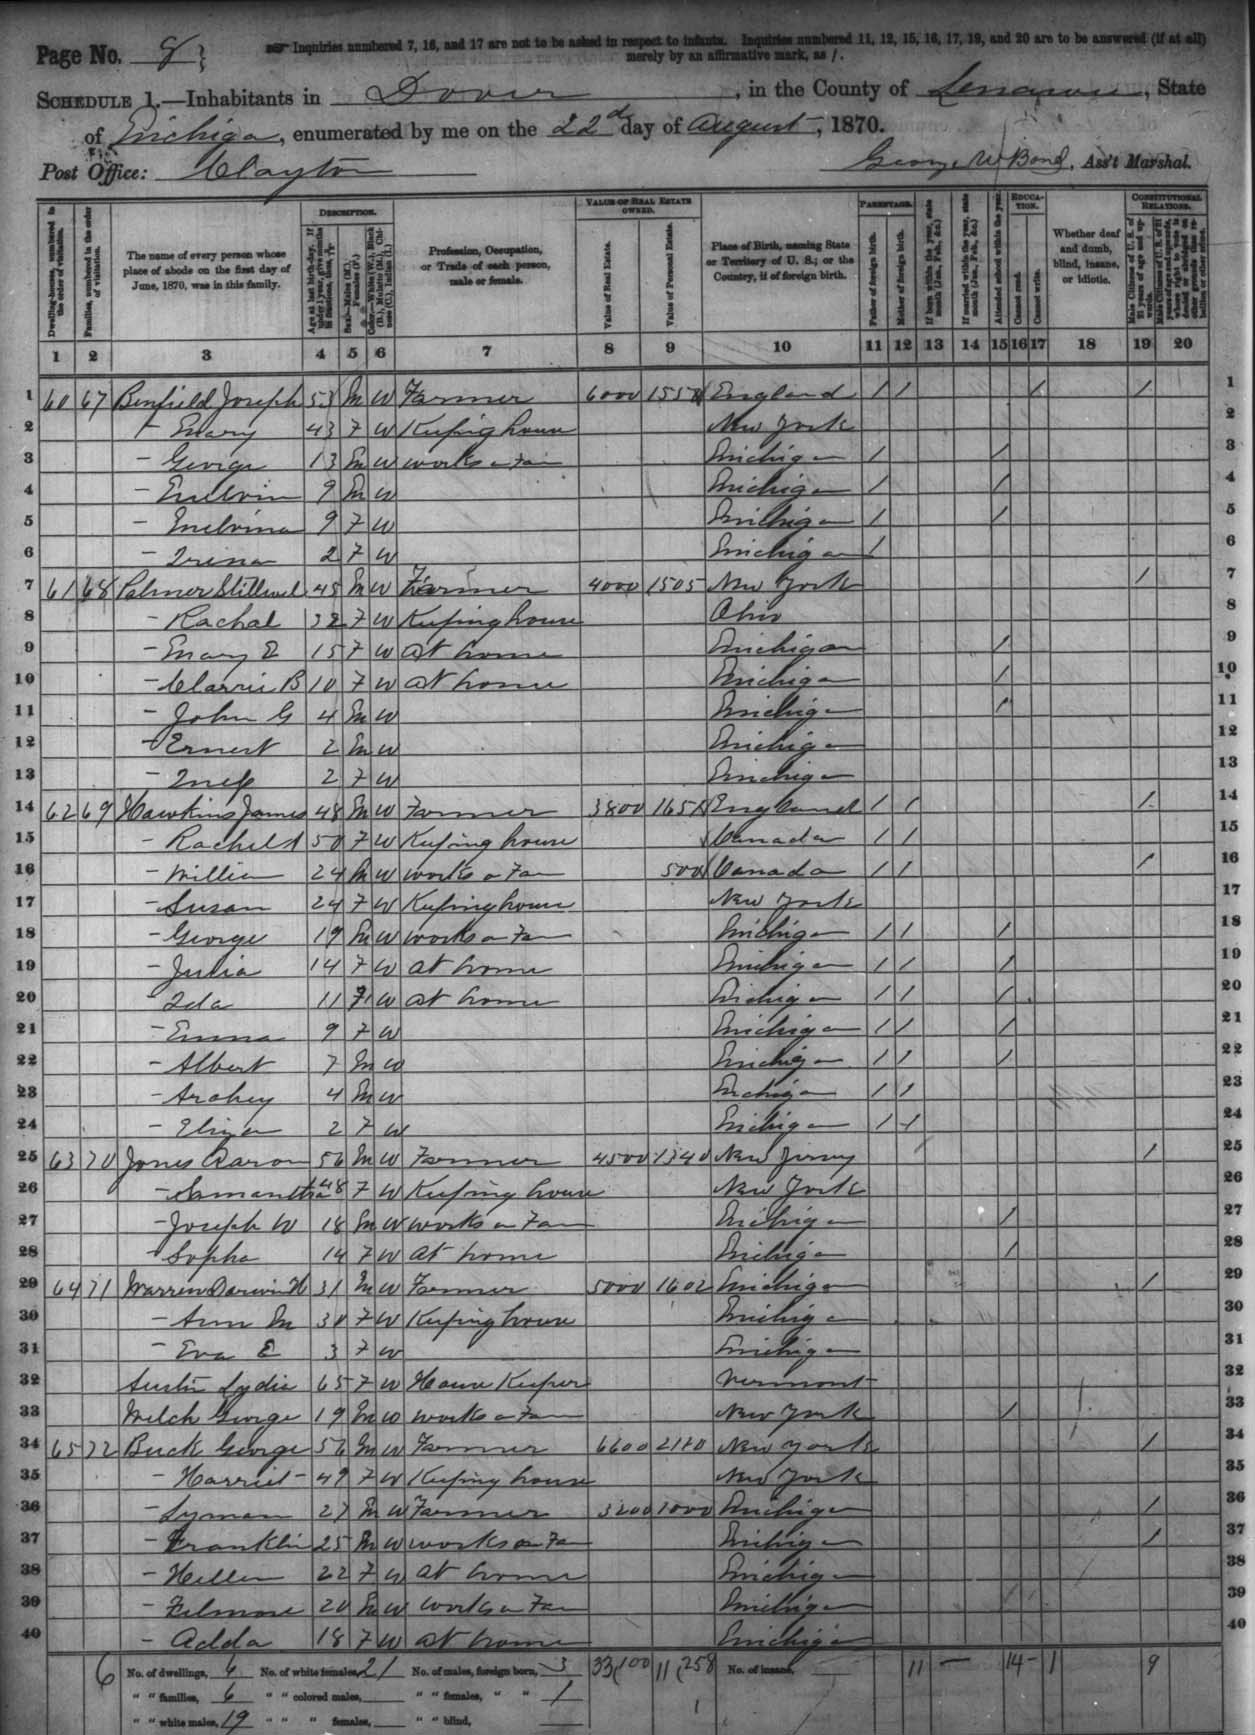 Page No. 8
Inquiries numbered 7, 16, and 17 are not to be asked in respect to infants. Inquiries numbered 11, 12, 15, 16, 17, 19, and 20 are to be answered (if at all)
merely by an affirmative mark, as /.
SCHEDULE 1.—Inhabitants in Dover, in the County of Lenawee, State
of Michigan, enumerated by me on the 22d day of August, 1870.
Post Office: Clayton
George W Bond, Ass't Marshal.
DESCRIPTION. VALUE OF REAL ESTATE OWNED. PARENTAGE. EDUCATION. CONSTITUTIONAL RELATIONS.
Dwelling-houses, numbered in the order of visitation.
Families, numbered in the order of visitation.
The name of every person whose place of abode on the first day of June, 1870, was in this family.
Age at last birth-day. If under 1 year, give months in fractions, thus, 3/12
Sex—Males (M.), Females (F.)
Color—White (W.), Black (B.), Mulatto (M.), Chinese (C.), Indian (I.)
Profession, Occupation, or Trade of each person, male or female.
Value of Real Estate.
Value of Personal Estate.
Place of Birth, naming State or Territory of U. S.; or the Country, if of foreign birth.
Father of foreign birth.
Mother of foreign birth.
If born within the year, state month (Jan., Feb., &c.)
If married within the year, state month (Jan., Feb., &c.)
Attended school within the year.
Cannot read.
Cannot write.
Whether deaf and dumb, blind, insane, or idiotic.
Male Citizens of U. S. of 21 years of age and upwards.
Male Citizens of U. S. of 21 years of age and upwards, whose right to vote is denied or abridged on other grounds than rebellion or other crime.
1 2 3 4 5 6 7 8 9 10 11 12 13 14 15 16 17 18 19 20
1 60 67 Benfield Joseph 53 M W Farmer 6000 1550 England / / / / 1
2 — Mary 43 F W Keeping house New York 2
3 — George 13 M W works on Fa Michigan / / 3
4 — Melvin 9 M W Michigan / / 4
5 — Melvina 9 F W Michigan / / 5
6 — Irena 2 F W Michigan / 6
7 61 68 Palmer Stillwel 45 M W Farmer 4000 1505 New York / 7
8 — Rachal 32 F W Keeping house Ohio 8
9 — Mary E 15 F W At home Michigan / 9
10 — Clarrie B 10 F W At home Michigan / 10
11 — John G 4 M W Michigan / 11
12 — Ernest 2 M W Michigan 12
13 — Inez 2 F W Michigan 13
14 62 69 Hawkins James 48 M W Farmer 3800 1651 England / / / 14
15 — Rachel A 50 F W Keeping house Canada / / 15
16 — William 24 M W works on Fa 500 Canada / / / 16
17 — Susan 24 F W Keeping house New York 17
18 — George 19 M W works on Fa Michigan / / / 18
19 — Julia 14 F W At home Michigan / / / 19
20 — Ida 11 F W At home Michigan / / / 20
21 — Emma 9 F W Michigan / / / 21
22 — Albert 7 M W Michigan / / / 22
23 — Archey 4 M W Michigan / / 23
24 — Eliza 2 F W Michigan / / 24
25 63 70 Jones Aaron 56 M W Farmer 4500 1340 New Jersey / 25
26 — Samantha 48 F W Keeping house New York 26
27 — Joseph W 18 M W works on Fa Michigan / 27
28 — Sopha 14 F W At home Michigan / 28
29 64 71 Warren Darwin H 31 M W Farmer 5000 1602 Michigan / 29
30 — Ann M 30 F W Keeping house Michigan 30
31 — Eva E 3 F W Michigan 31
32 Austin Lydia 65 F W House Keeper Vermont 32
33 Welch George 19 M W works on Fa New York / 33
34 65 72 Buck George 56 M W Farmer 6600 2110 New York / 34
35 — Harriet 49 F W Keeping house New York 35
36 — Lyman 27 M W Farmer 3200 1000 Michigan / 36
37 — Franklin 25 M W works on Fa Michigan / 37
38 — Hellen 22 F W At home Michigan 38
39 — Filmore 20 M W works on Fa Michigan 39
40 — Adda 18 F W At home Michigan 40
6 No. of dwellings, 6 No. of white females, 21 No. of males, foreign born, 3 33,100 11,258 No. of insane, 11 — 14 — 1 9
" " families, 6 " " colored males, " " females, " " 1
" " white males, 19 " " " females, " " blind,